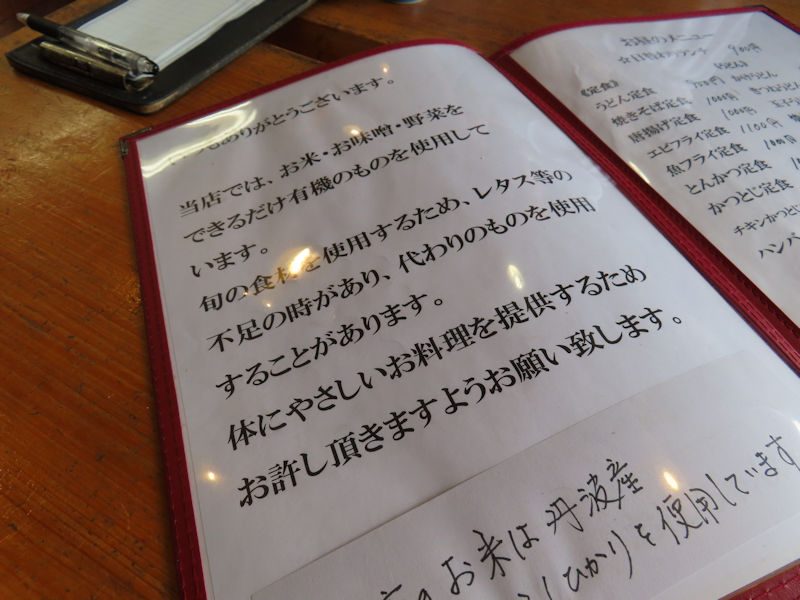 いつもありがとうございます。
当店では、お米・お味噌・野菜を
できるだけ有機のものを使用して
います。
旬の食材を使用するため、レタス等の
不足の時があり、代わりのものを使用
することがあります。
体にやさしいお料理を提供するため
お許し頂きますようお願い致します。
お米は丹波産
ひかりを使用しています
お昼のメニュー
☆日替わりランチ 900円
《定食》
うどん定食
焼きそば定食 1000円
唐揚げ定食 1000円
エビフライ定食 1100円
魚フライ定食 1000円
とんかつ定食
かつとじ定食
チキンかつとじ
ハンバ